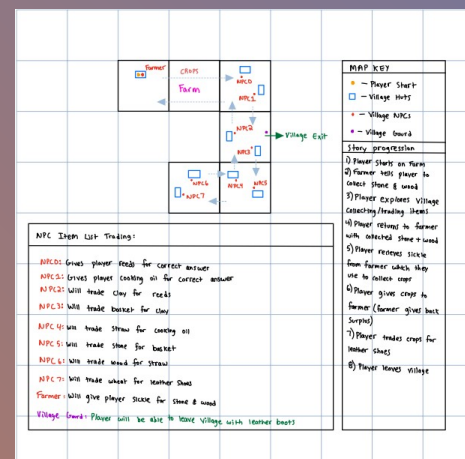 Farmer
CROPS
Farm
NPC0
NPC1
NPC2
Village Exit
NPC3
NPC6
NPC4
NPC5
NPC7
MAP KEY
- Player Start
- Village Huts
- Village NPCs
- Village Guard
Story progression
1) Player starts on Farm
2) Farmer tells player to
collect stone & wood
3) Player explores village
collecting/trading items
4) Player returns to farmer
with collected stone + wood
5) Player recieves sickle
from farmer which they
use to collect crops
6) Player gives crops to
farmer (farmer gives back
surplus)
7) Player trades crops for
leather shoes
8) Player leaves village
NPC Item List Trading:
NPC0: Gives player reeds for correct answer
NPC1: Gives player cooking oil for correct answer
NPC2: Will trade clay for reeds
NPC3: Will trade basket for clay
NPC 4: Will trade straw for cooking oil
NPC 5: Will trade stone for basket
NPC 6: Will trade wood for straw
NPC 7: Will trade wheat for leather shoes
Farmer: Will give player sickle for stone & wood
Village Guard: Player will be able to leave village with leather boots